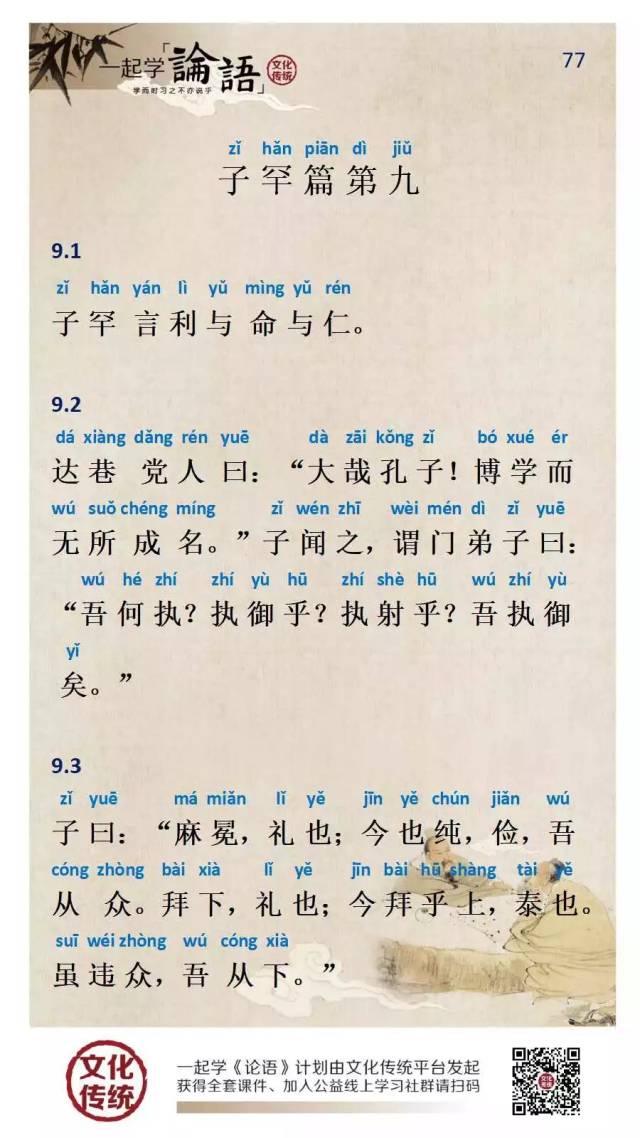 一起学「論語」 文化传统
77
学而时习之不亦说乎
zǐ hǎn piān dì jiǔ
子罕篇第九
9.1
zǐ hǎn yán lì yǔ mìng yǔ rén
子罕言利与命与仁。
9.2
dá xiàng dǎng rén yuē dà zāi kǒng zǐ bó xué ér
达巷党人曰：“大哉孔子！博学而
wú suǒ chéng míng zǐ wén zhī wèi mén dì zǐ yuē
无所成名。”子闻之，谓门弟子曰：
wú hé zhí zhí yù hū zhí shè hū wú zhí yù
“吾何执？执御乎？执射乎？吾执御
yǐ
矣。”
9.3
zǐ yuē má miǎn lǐ yě jīn yě chún jiǎn wú
子曰：“麻冕，礼也；今也纯，俭，吾
cóng zhòng bài xià lǐ yě jīn bài hū shàng tài yě
从众。拜下，礼也；今拜乎上，泰也。
suī wéi zhòng wú cóng xià
虽违众，吾从下。”
文化传统
一起学《论语》计划由文化传统平台发起
获得全套课件、加人公益线上学习社群请扫码